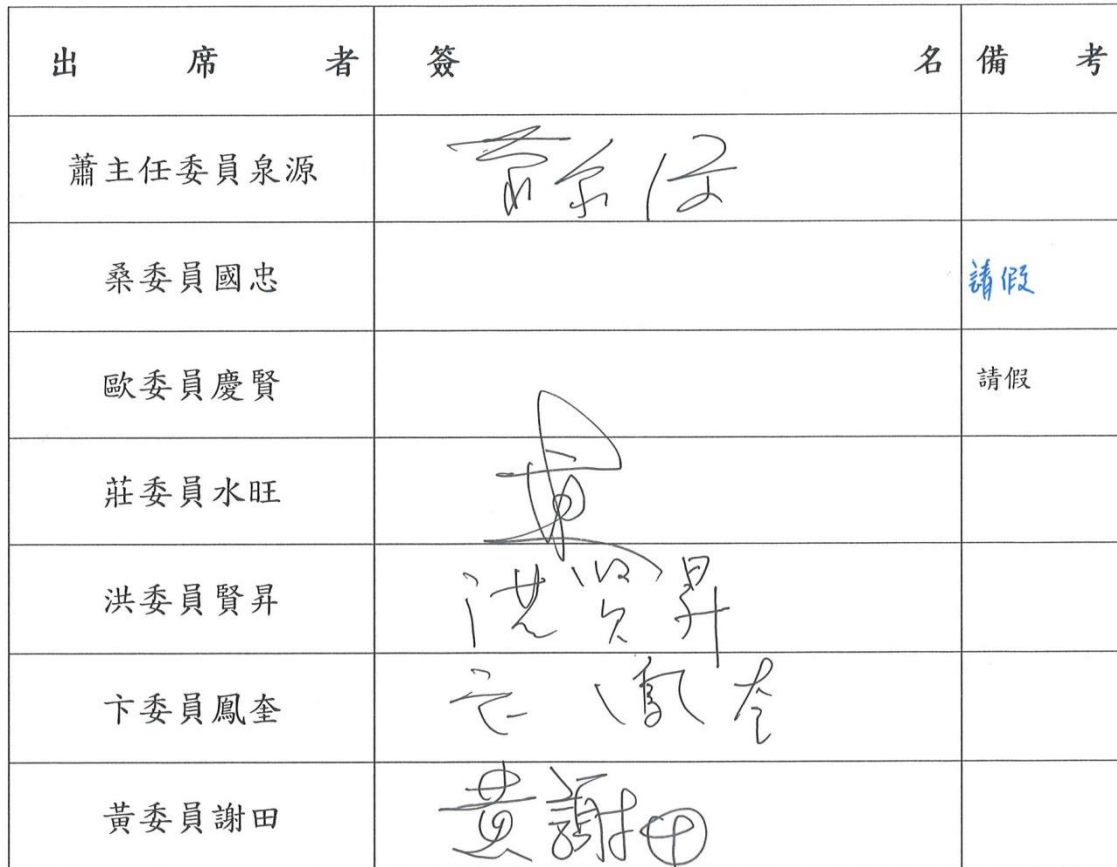 出席者 簽名 備考
蕭主任委員泉源
桑委員國忠 請假
歐委員慶賢 請假
莊委員水旺
洪委員賢昇 洪賢昇
卞委員鳳奎
黃委員謝田 黃謝田